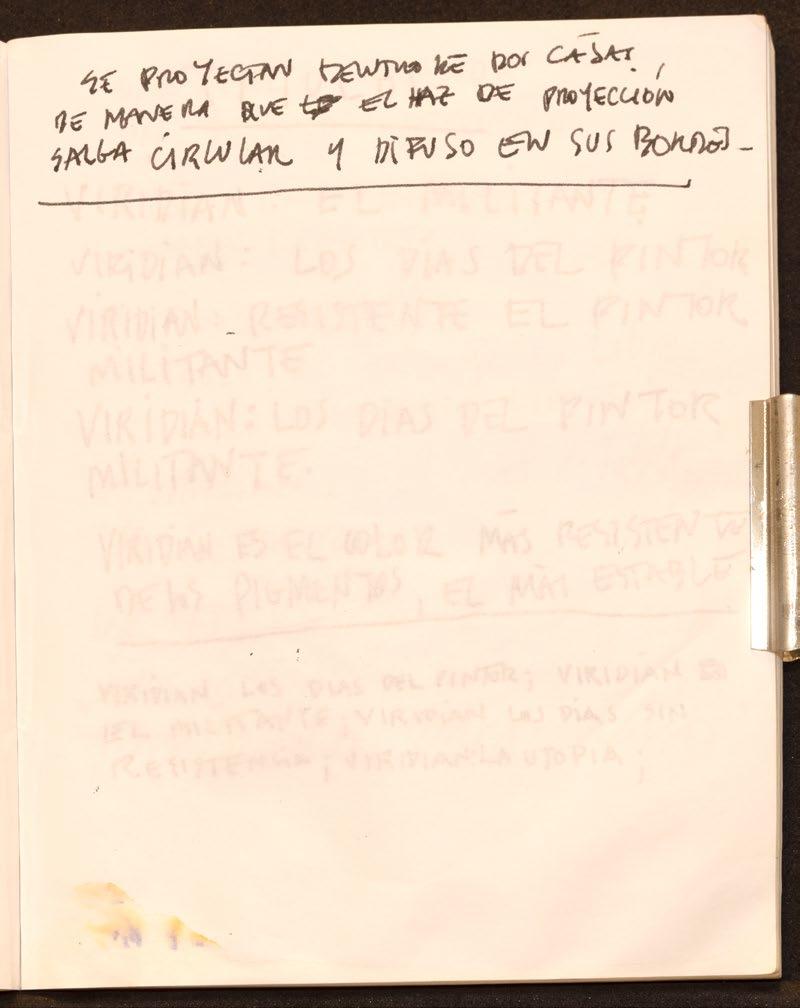 SE PROYECTAN DENTRO DE DOS CAJAS,
DE MANERA QUE EL HAZ DE PROYECCIÓN
SALGA CIRCULAR Y DIFUSO EN SUS BORDES_
VIRIDIAN: EL MILITANTE
VIRIDIAN: LOS DÍAS DEL PINTOR
VIRIDIAN: RESISTENTE EL PINTOR
MILITANTE
VIRIDIAN: LOS DIAS DEL PINTOR
MILITANTE.
VIRIDIAN ES EL COLOR MÁS RESISTENTE
DE LOS PIGMENTOS, EL MÁS ESTABLE
VIRIDIAN LOS DIAS DEL PINTOR; VIRIDIAN
EL MILITANTE; VIRIDIAN LOS DIAS SIN
RESISTENCIA; VIRIDIAN: LA UTOPIA;